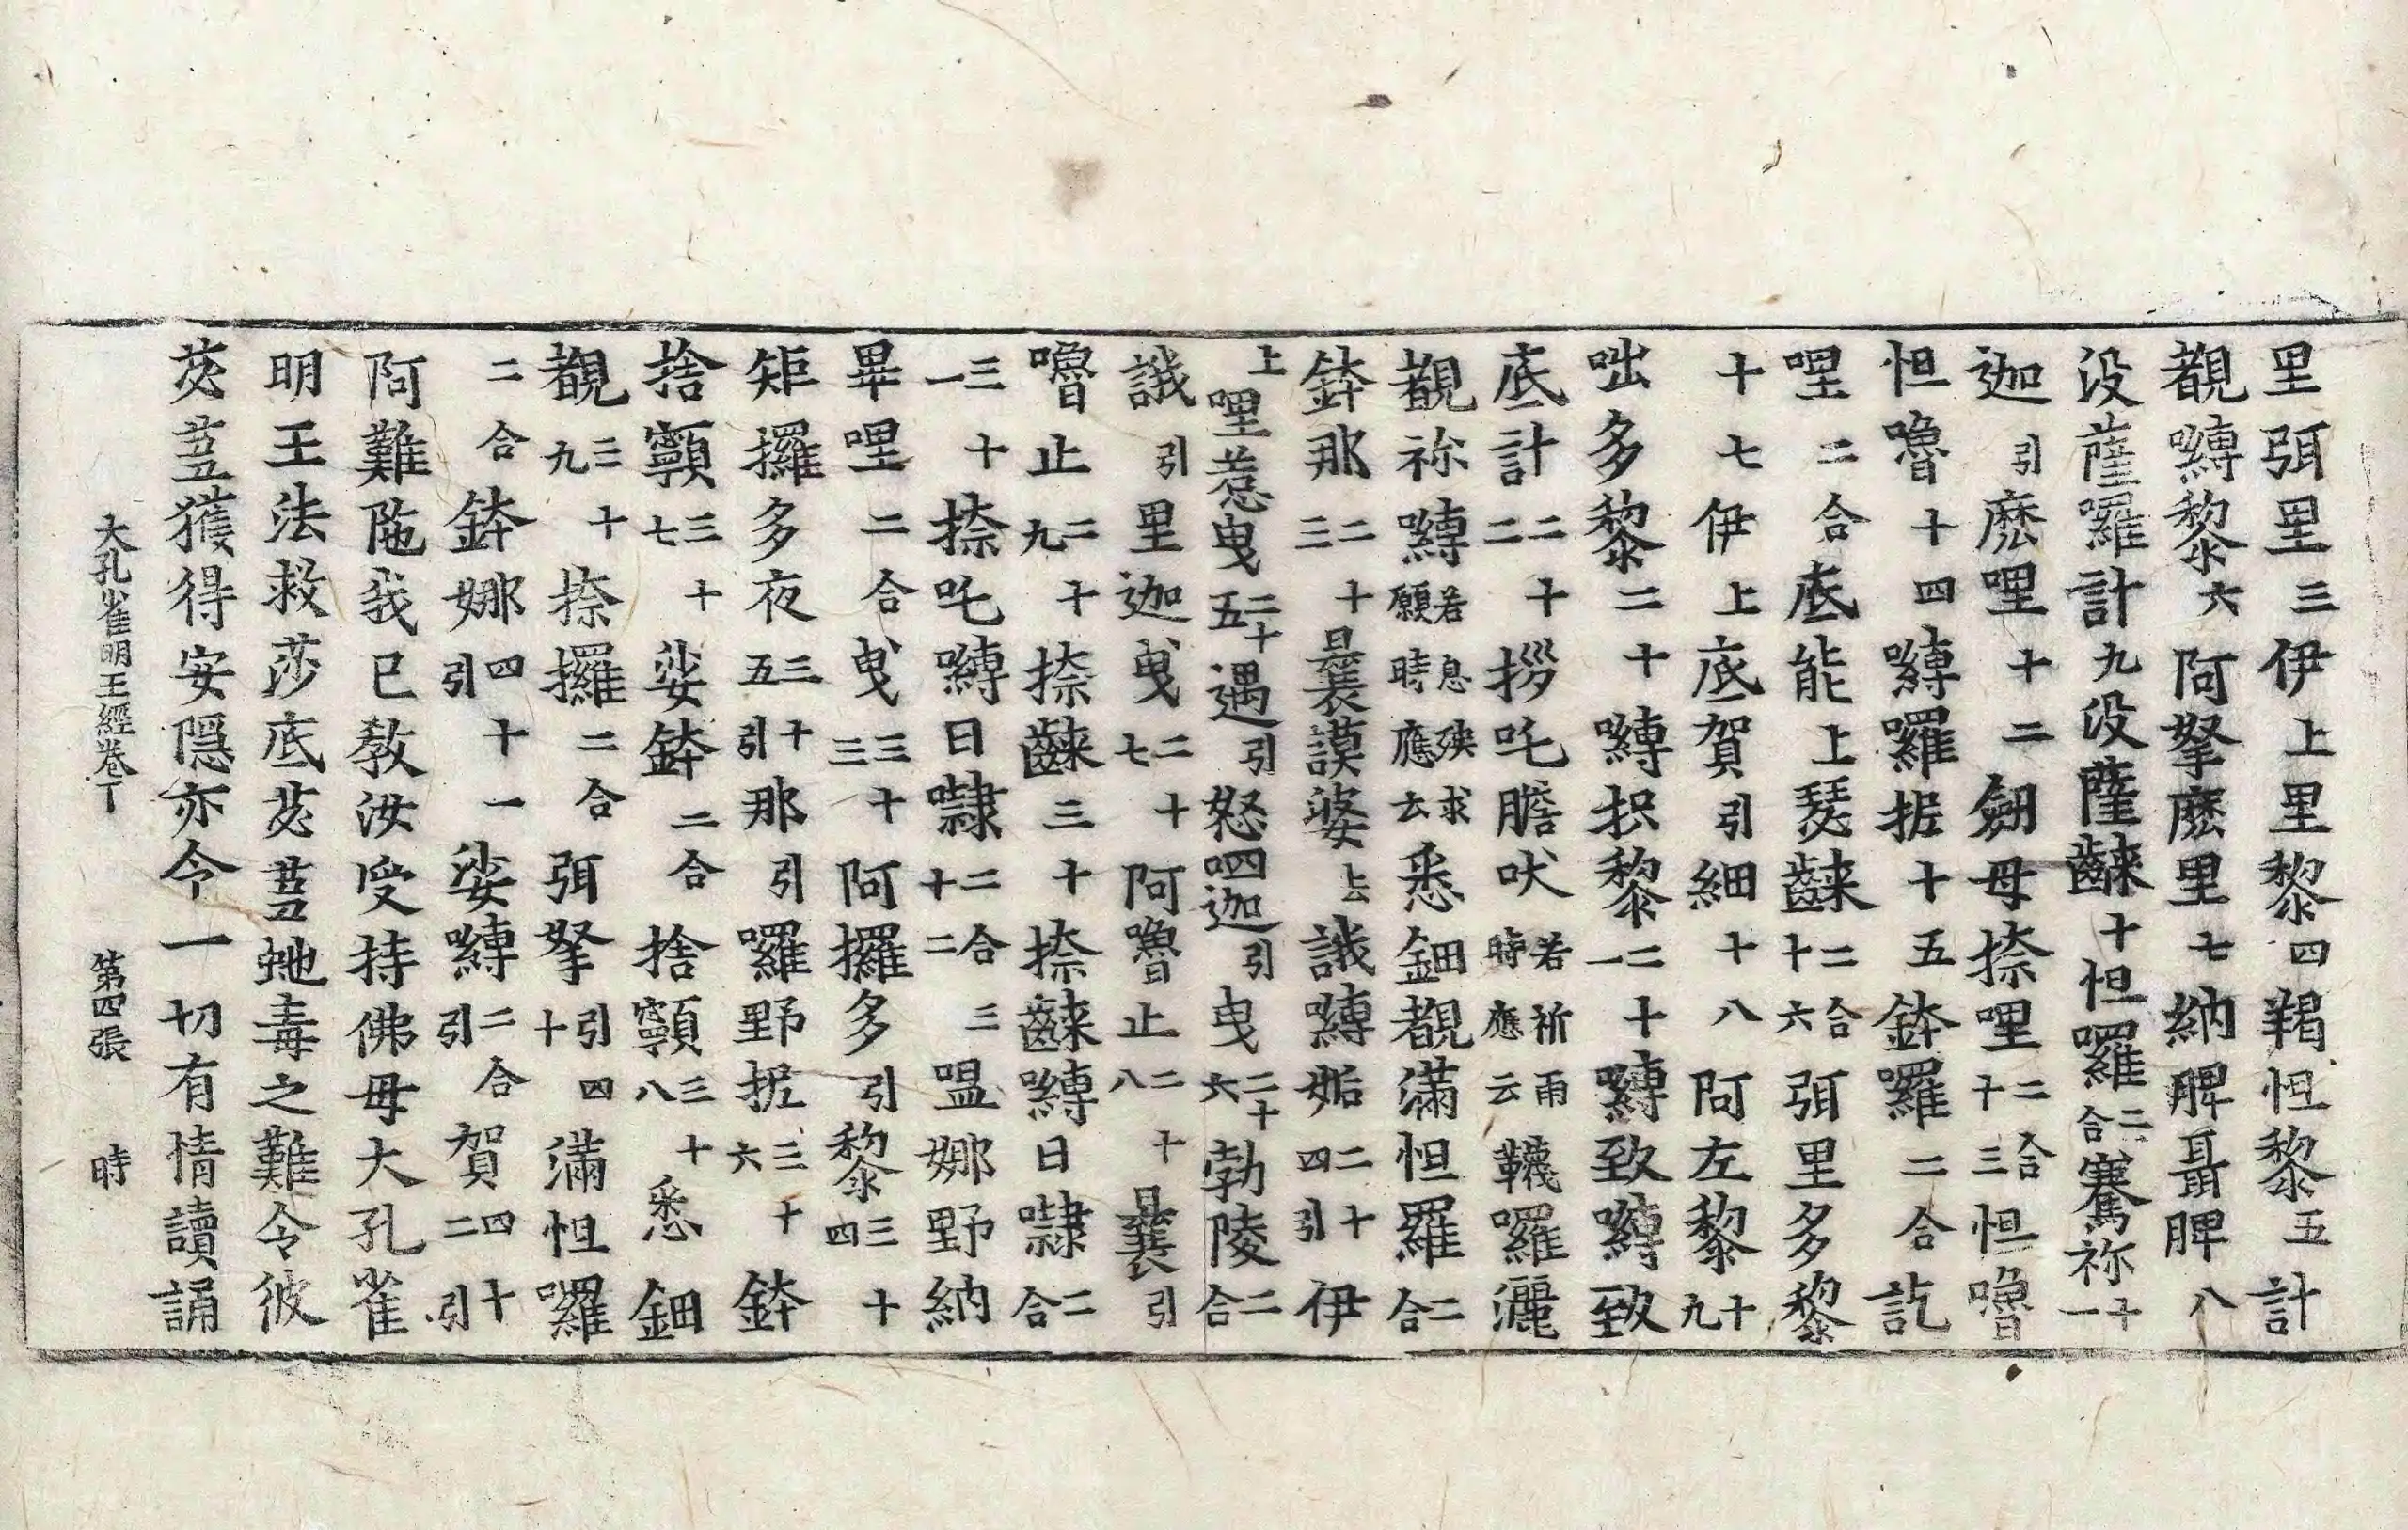 里弭里三伊上里黎四羯怛黎五計
覩嚩黎六阿拏麽里七納脾聶脾八
没薩囉計九没薩𪘨十怛囉二合騫祢十一
迦引麽哩十二劒母捺哩二合十三怛嚕
怛嚕十四嚩囉据十五鉢囉二合訖
哩二合底能上瑟𪘨二合十六弭里多黎
十七伊上底賀引細十八阿左黎十九
咄多黎二十嚩枳黎二十一嚩致嚩致
底計二十二拶吒膽吠若祈雨時應云韈囉灑
覩祢嚩若息殃求願時應云悉鈿覩滿怛羅二合
鉢那二十三曩謨婆上誐嚩妬二十四引伊
上哩惹曳二十五遇引怒呬迦引曳二十六勃陵二合
誐引里迦曳二十七阿嚕止二十八曩引
嚕止二十九捺𪘨三十捺𪘨嚩日㘑二合
三十一捺吒嚩日㘑二合三十二嗢娜野納
畢哩二合曳三十三阿攞多引黎三十四
矩攞多夜三十五引那引囉野抳三十六鉢
捨顐三十七娑鉢二合捨顐三十八悉鈿
覩三十九捺攞二合弭拏引四十滿怛囉
二合鉢娜四十一引娑嚩二合引賀四十二引
阿難陁我已教汝受持佛母大孔雀
明王法救莎底苾蒭虵毒之難令彼
苾蒭獲得安隱亦令一切有情讀誦
大孔雀明王經卷下 第四張 時